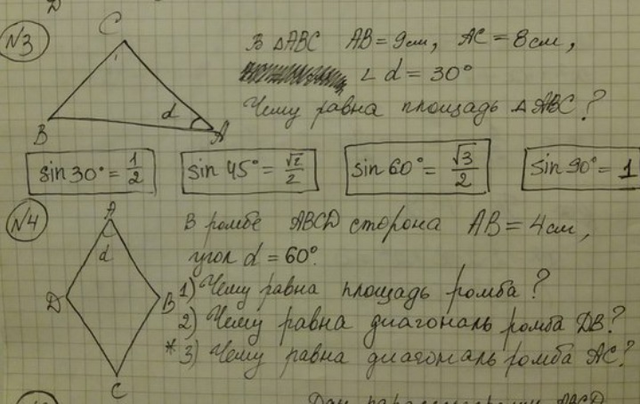 N3
C
B
A
d
В △ABC AB = 9см, AC = 8см,
∠ d = 30°
Чему равна площадь △ABC?
sin 30° = 1/2
sin 45° = √2/2
sin 60° = √3/2
sin 90° = 1
N4
A
d
D
B
C
В ромбе ABCD сторона AB = 4см,
угол d = 60°.
1) Чему равна площадь ромба?
2) Чему равна диагональ ромба DB?
* 3) Чему равна диагональ ромба AC?